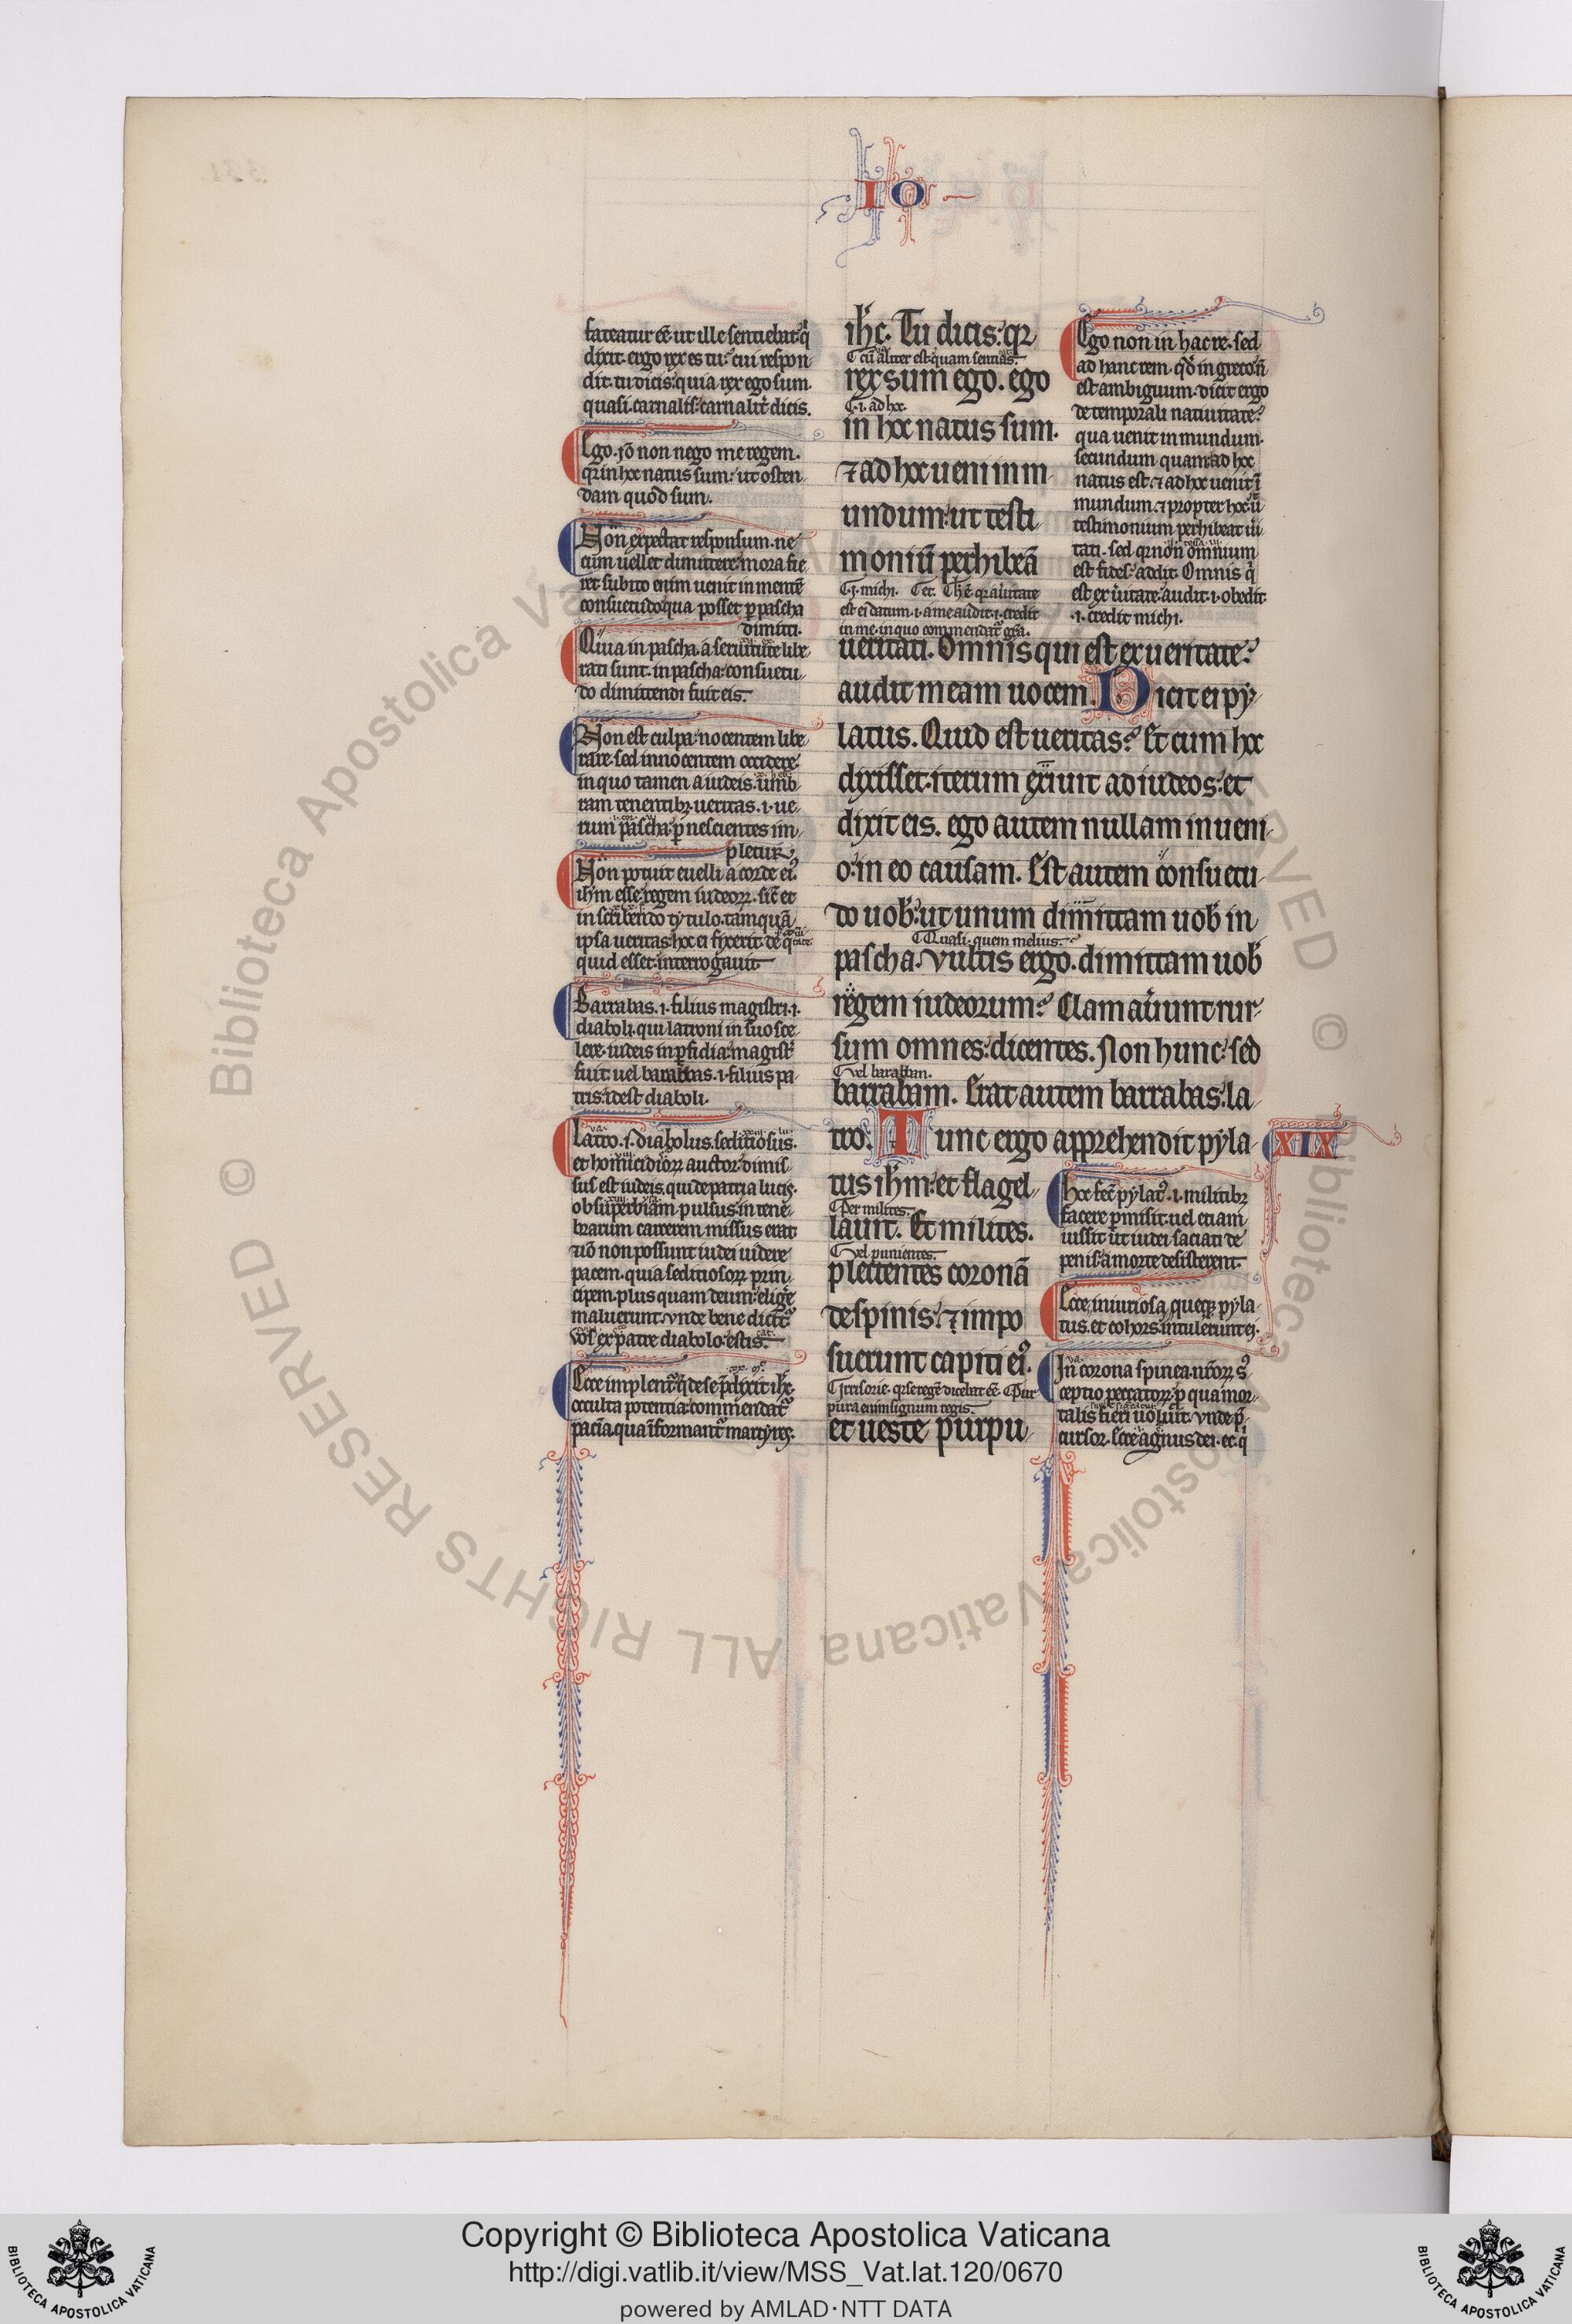 IO
fateatur eē ut ille sentiebat. q̇
dixit. ergo rex es tu? cui respon
dit. tu dicis. quia rex ego sum.
quasi. carnalis. carnalit̄ dicis.
Ego. iō non nego me regem.
qr in hoc natus sum. ut osten
dam quod sum.
Non expectat responsum. ne
cum uellet dimittere. mora fie
ret subito enim uenit in mentē
consuetudo qua posset p pascha
dimitti.
Quia in pascha a seruitute libe
rati sunt. in pascha consuetu
do dimittendi fuit eis.
Non est culpa nocentem libe
rare. sed innocentem occidere.
in quo tamen a iudeis. umb
ram tenentibꝫ. ueritas .i. ue
rum pascha. p nescientes im
pletur.
Non potuit euelli a corde eiꝰ.
ihm esse regem iudeoꝝ. sic̄ et
in scribendo tytulo. tamquā
ipsa ueritas hoc ei fixerit de q̄
quid esset. interrogauit
Barrabas .i. filius magistri .i.
diaboli. qui latroni in suo sce
lere. iudeis in pfidia. magist̄
fuit uel barabbas .i. filius pa
tris. idest diaboli.
Latro .i. diabolus. seditiosus.
et homicidioꝝ auctor. dimis
sus est iudeis. qui de patria lucis.
ob superbiam pulsus. in tene
brarum carcerem missus erat
iō non possunt iudei uidere
pacem. quia seditiosoꝝ prin
cipem. plus quam deum elige
maluerunt. vnde bene dict̄
vos ex patre diabolo estis.
Ecce implent̄ q̄ de se p̄dixit ihc
occulta potentia. commendat̄
pacia. qua īformant̄ martyres.
ihc. Tu dicis. qr
Cū aliter est. quam sentias.
rex sum ego. ego
.i. ad hoc.
in hoc natus sum.
⁊ ad hoc ueni in m
undum. ut testi
moniū perhibeā
est ei datum .i. a me audit .i. credit
in me. in quo commendat̄ gr̄a.
ueritati. Omnis qui est ex ueritate.
audit meam uocem. Dicit ei py
latus. Quid est ueritas? Et cum hoc
dixisset. iterum exiuit ad iudeos. et
dixit eis. ego autem nullam inueni
o. in eo causam. Est autem consuetu
do uob. ut unum dimittam uob in
Quasi. quem melius.
pascha. Vultis ergo. dimittam uob
regem iudeorum? Clamauerunt rur
sum omnes. dicentes. Non hunc. sed
vel barabban.
barrabam. Erat autem barrabas. la
tro. Tunc ergo apprehendit pyla
XIX
tus ihm. et flagel
Per milites.
lauit. Et milites.
Vel punientes.
plectentes coronā
de spinis. ⁊ impo
suerunt capiti eiꝰ.
Irrisorie. qr se regē dicebat eē. Pur
pura enim signum regis.
et ueste purpu
Ego non in hac re. sed
ad hanc rem. qd in greco n̄
est ambiguum. dicit ergo
de temporali natiuitate.
qua uenit in mundum.
secundum quam ad hoc
natus est. ⁊ ad hoc uenit ī
mundum. ⁊ propter hoc ū
testimonium perhibeat ui
tati. sed qr non omnium
est fides. addit. Omnis q̇
est ex uitate. audit .i. obedit
.i. credit michi.
Hoc fec̄ pylatꝰ .i. militibꝫ
facere pmisit. uel etiam
iussit. ut iudei saciati de
penis. a morte desisterent.
Ecce, iniuriosa queqꝫ pyla
tus. et cohors. intulerunt ei.
In corona spinea. nr̄oꝝ sꝰ
ceptio peccatoꝝ. p qua mor
talis fieri uoluit. vnde p̄
cursor. Ecce agnus dei. ec̄. q̇
Copyright © Biblioteca Apostolica Vaticana
http://digi.vatlib.it/view/MSS_Vat.lat.120/0670
powered by AMLAD·NTT DATA
BIBLIOTECA APOSTOLICA VATICANA
BIBLIOTECA APOSTOLICA VATICANA
© Biblioteca Apostolica Vaticana ALL RIGHTS RESERVED